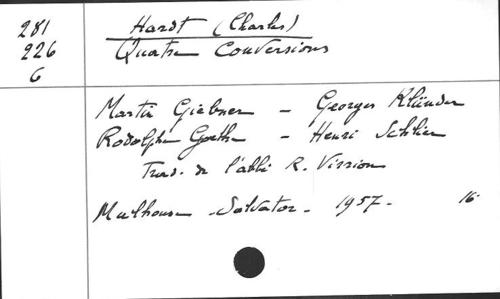 281
226
6
Hardt (Charles)
Quatre Conversions
Martin Giebner - Georges Klünder
Rodolphe Goethe - Henri Schlier
Trad. de l'abbé R. Virrion
Mulhouse - Salvator - 1957 - 16